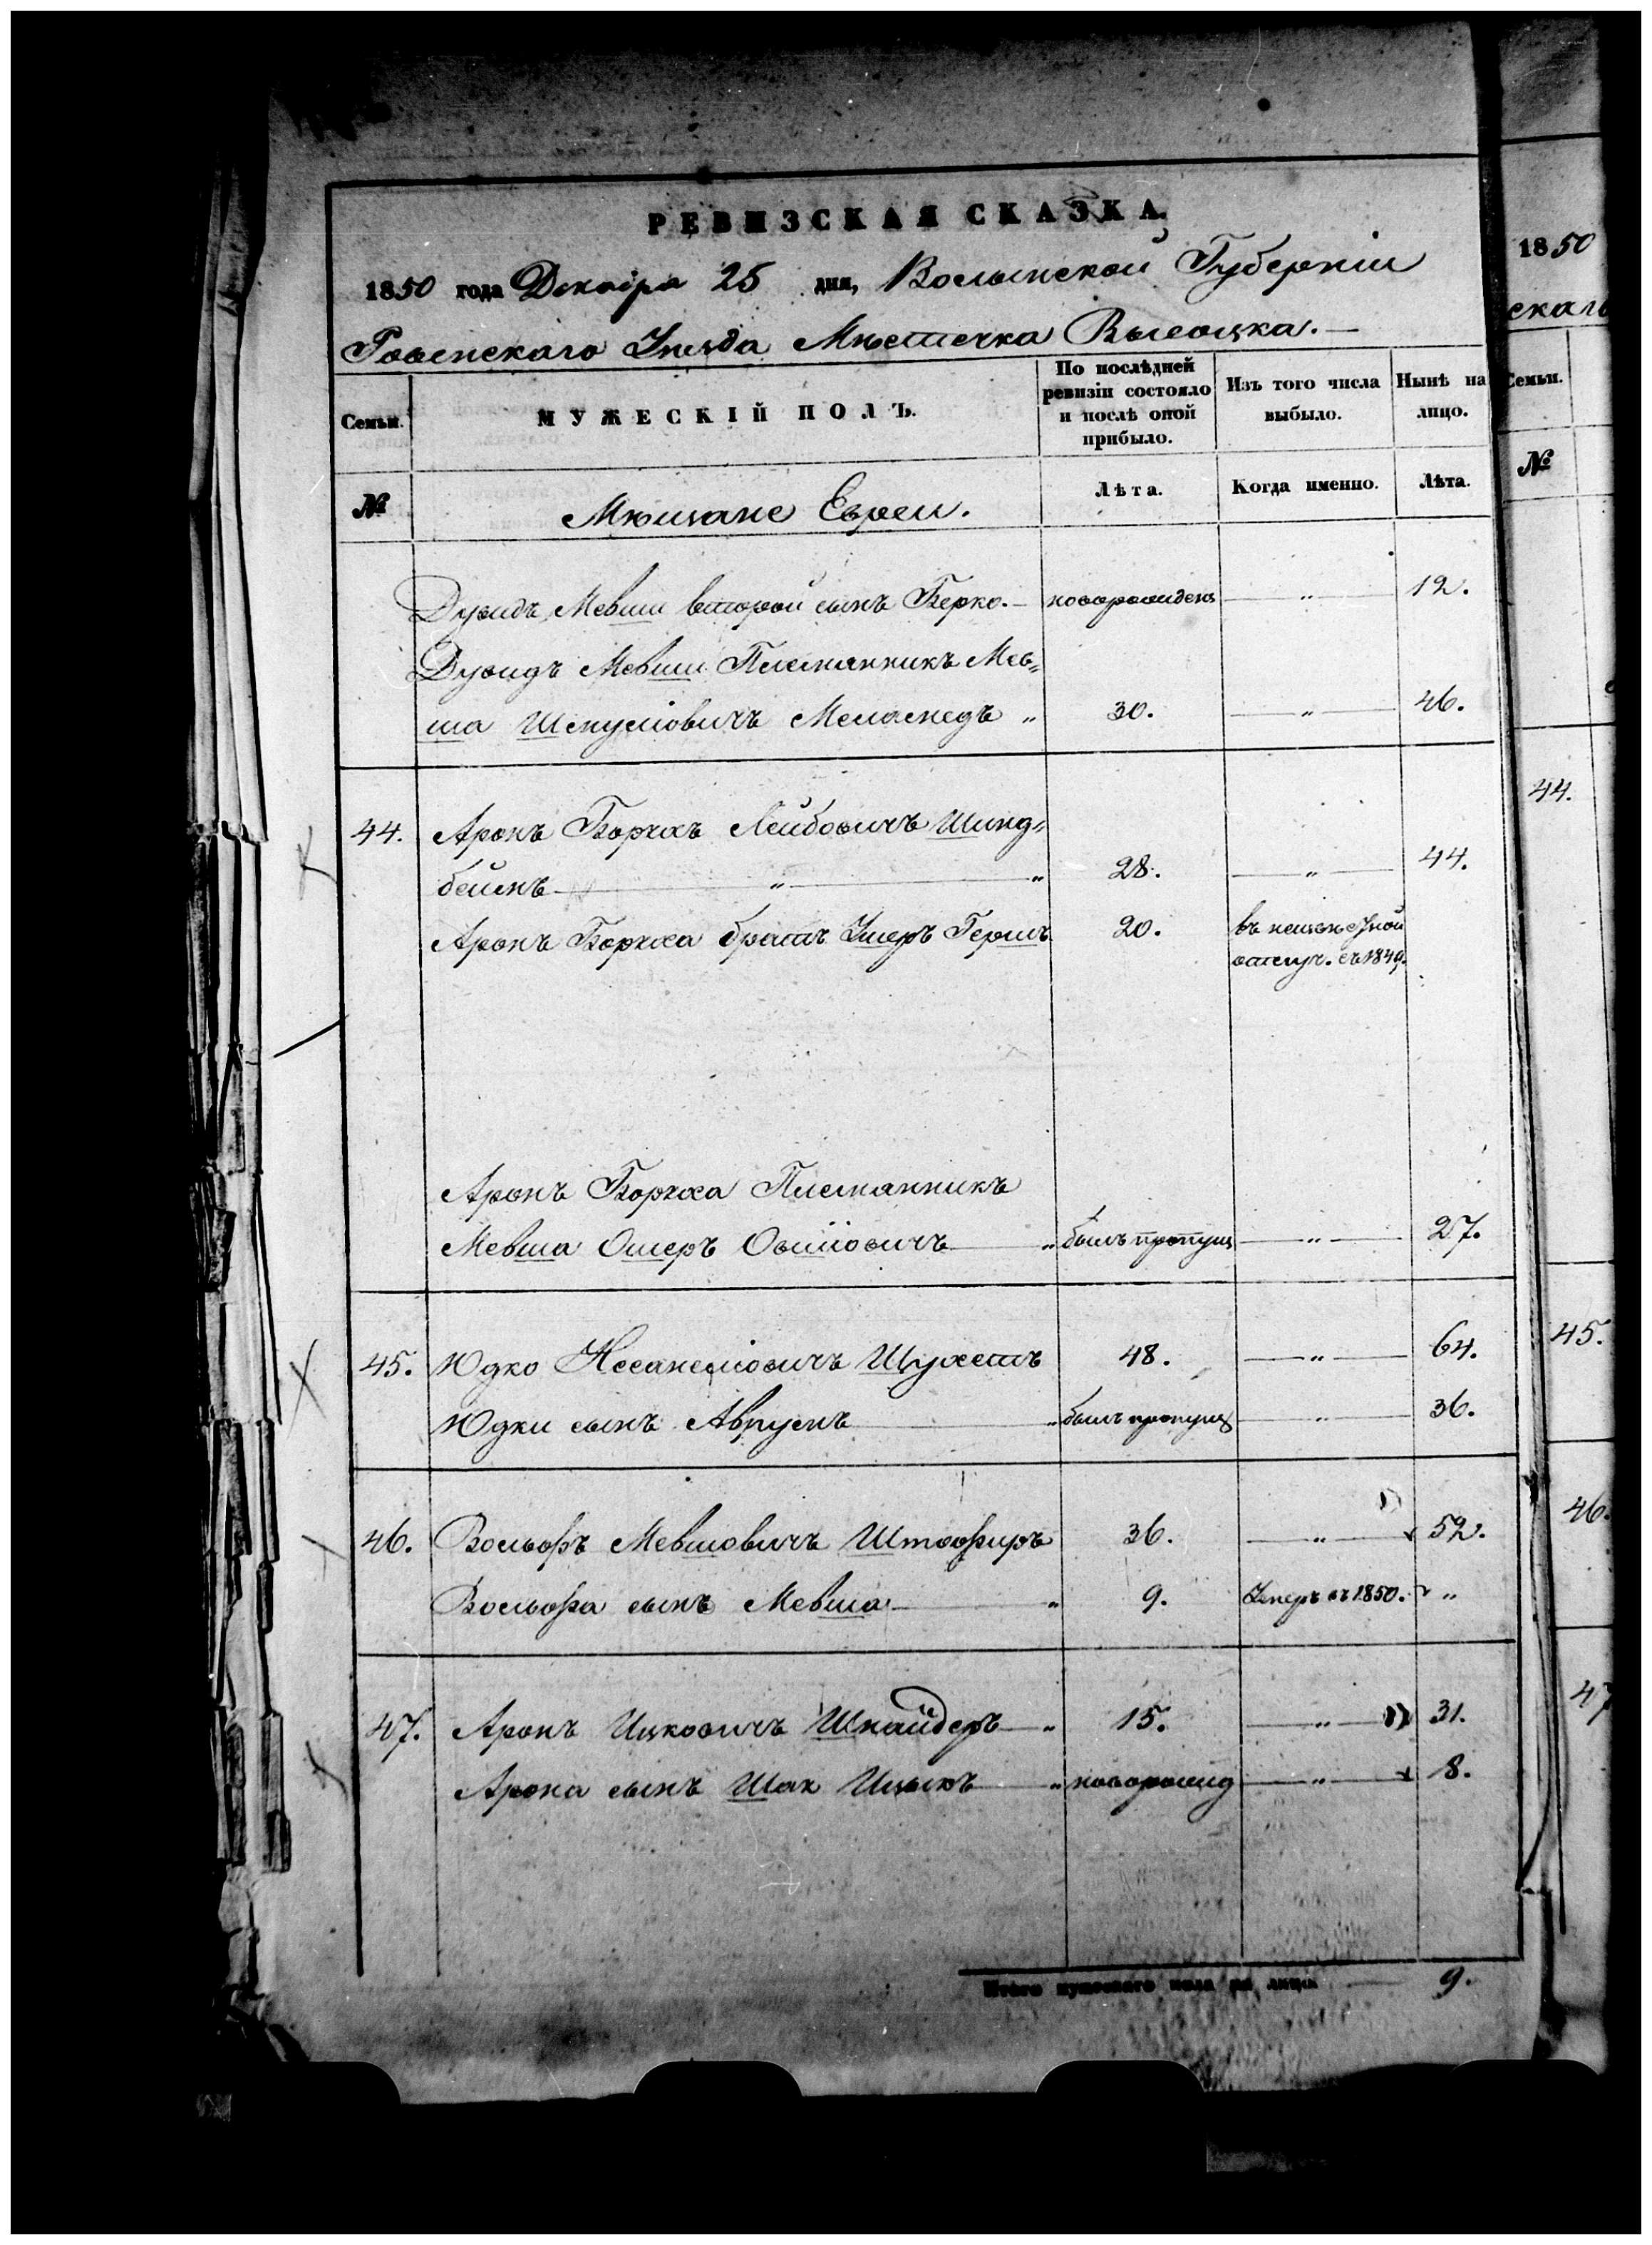 РЕВИЗСКАЯ СКАЗКА.
1850 года Декабря 25 дня, Волынской Губерніи
Ровенскаго Уѣзда Мѣстечка Высоцка.—
Семьи. МУЖЕСКІЙ ПОЛЪ. По послѣдней ревизіи состояло и послѣ оной прибыло. Изъ того числа выбыло. Нынѣ на лицо.
№ Мѣщане Евреи. Лѣта. Когда именно. Лѣта.
Дувидъ Мевши второй сынъ Берко.— новорожденъ — „ — 12.
Дувидъ Мевши Племянникъ Мев„
ша Шмуліовичъ Меламедъ „ 30. — „ — 46.
44. Аронъ Борхъ Лейбовичъ Шинд„
бейнъ — „ — „ 28. — „ — 44.
Аронъ Борха братъ Ушеръ Гершъ 20. въ неизвѣстной
отлуч. съ 1849.
Аронъ Борха Племянникъ
Мевша Ошеръ Овшіовичъ — „ былъ пропущ — „ — 27.
45. Юдко Несанеліовичъ Шухетъ 48. — „ — 64.
Юдки сынъ Аврумъ — „ былъ пропущ — „ — 36.
46. Вольфъ Мевшовичъ 36. — „ — 52.
Вольфа сынъ Мевша — „ 9. Умеръ въ 1850. „
47. Аронъ Ицковичъ Шнайдеръ — „ 15. — „ — 31.
Арона сынъ Ицыкъ — „ новорожд — „ — 8.
Итого мужескаго пола на лицо — 9.
1850
скаго
Семьи.
№
44.
45.
46.
47